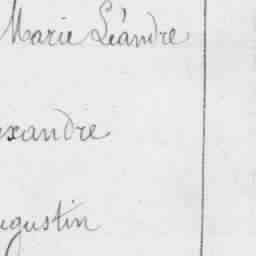 Marie Léandre
exandre
ugustin